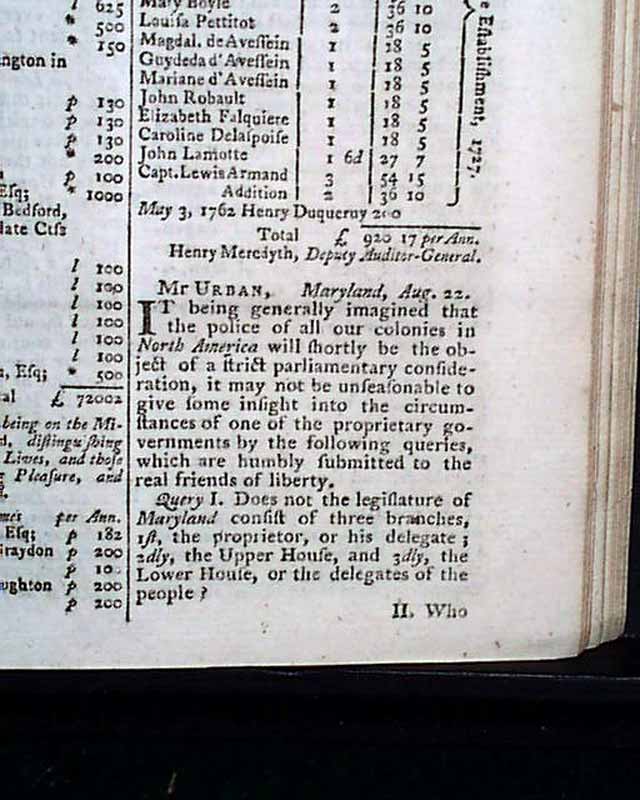 l 625
* 500
* 150
ngton in
p 130
p 130
p 130
* 200
p 100
Eſq; * 1000
Bedford,
late Ctſs
l 100
l 100
l 100
l 100
l 100
l 100
, Eſq; * 500
al £ 72002
being on the Mi-
d, diſtinguiſhing
Lives, and thoſe
Pleaſure, and
per Ann.
Eſq; p 182
Graydon p 200
p 10
ughton p 200
p 200
Mary Boyle 2 36 10
Louiſa Pettitot 2 36 10
Magdal. de Aveſſein 1 18 5
Guydeda d'Aveſſein 1 18 5
Mariane d'Aveſſein 1 18 5
John Robault 1 18 5
Elizabeth Falquiere 1 18 5
Caroline Delaſpoiſe 1 18 5
John Lamotte 1 6d 27 7
Capt. Lewis Armand 3 54 15
Addition 2 36 10
e Eſtabliſhment, 1727.
May 3, 1762 Henry Duqueruy 200
Total £ 920 17 per Ann.
Henry Meredyth, Deputy Auditor-General.
Mr URBAN, Maryland, Aug. 22.
IT being generally imagined that
the police of all our colonies in
North America will ſhortly be the ob-
ject of a ſtrict parliamentary conſide-
ration, it may not be unſeaſonable to
give ſome inſight into the circum-
ſtances of one of the proprietary go-
vernments by the following queries,
which are humbly ſubmitted to the
real friends of liberty.
Query I. Does not the legiſlature of
Maryland conſiſt of three branches,
1ſt, the proprietor, or his delegate ;
2dly, the Upper Houſe, and 3dly, the
Lower Houſe, or the delegates of the
people ?
II. Who